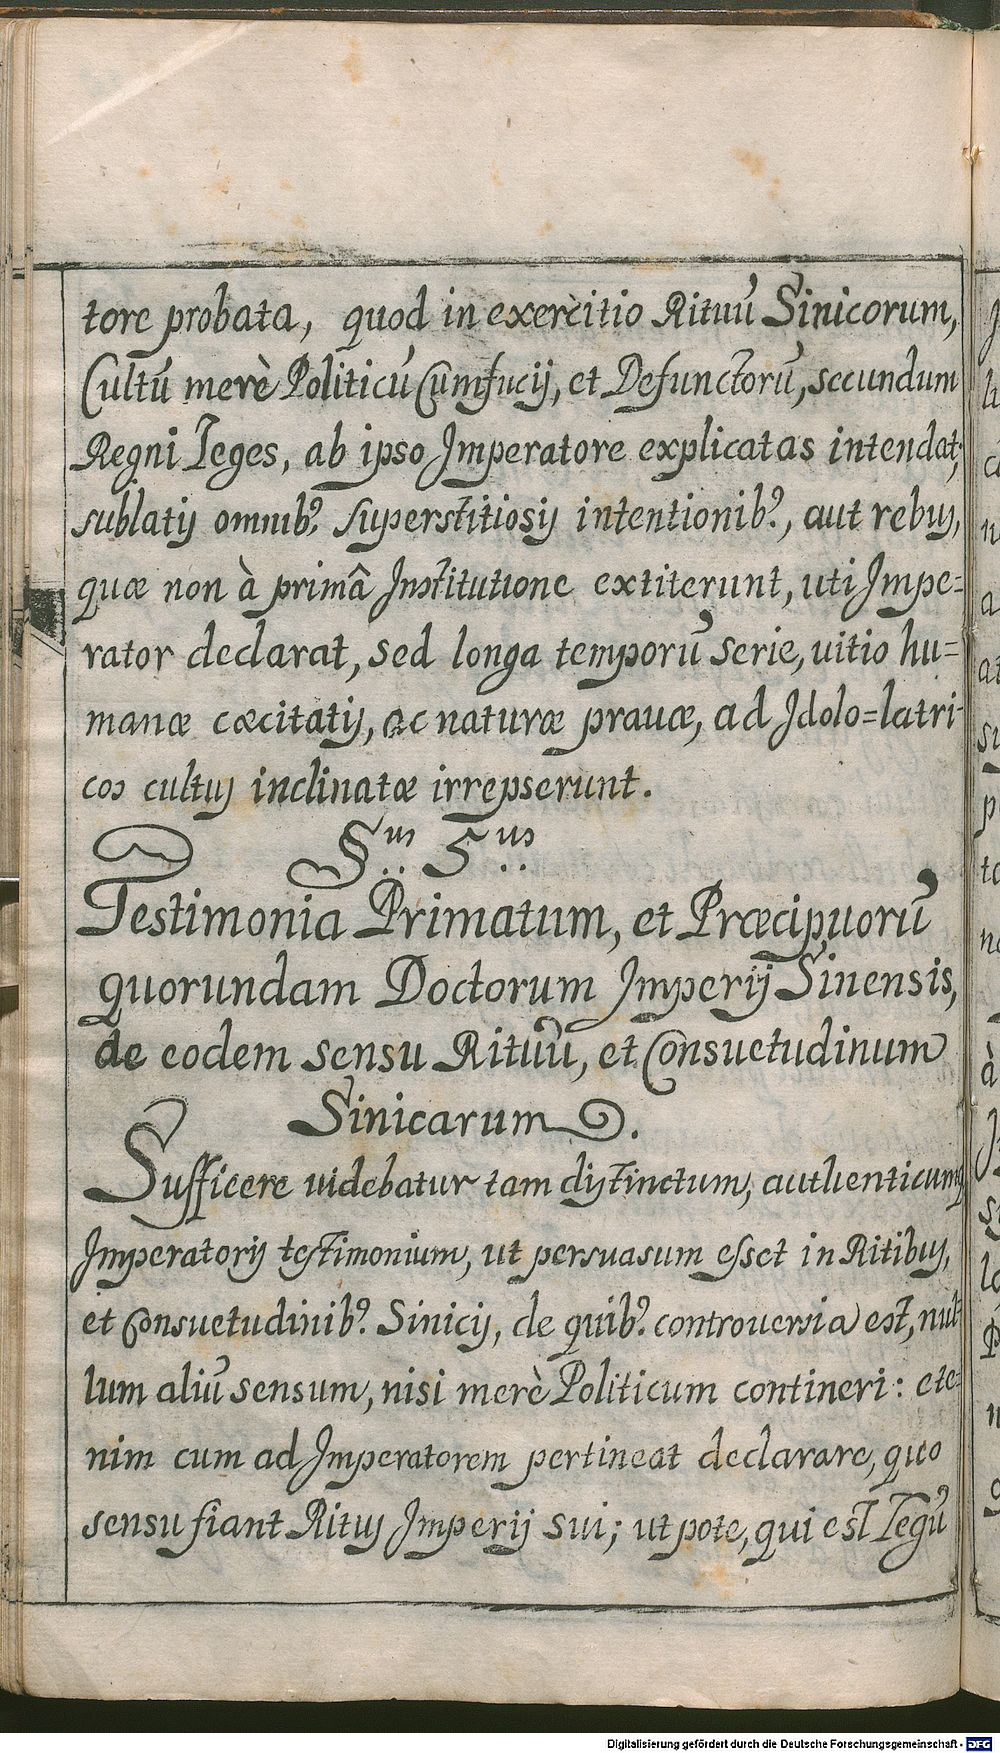 tore probata, quod in exercitio Rituū Sinicorum,
Cultū merè Politicū Cumfucij, et Defunctorū, secundum
Regni Leges, ab ipso Imperatore explicatas intendat;
sublatis omnibꝰ. superstitiosis intentionibꝰ., aut rebus,
quæ non à primâ Institutione extiterunt, uti Impe=
rator declarat, sed longa temporū serie, uitio hu=
manæ cœcitatis, ac naturæ prauæ, ad Idolo=latri-
cos cultus inclinatæ irrepserunt.
§.us 5.us
Testimonia Primatum, et Præcipuorū
quorundam Doctorum Imperij Sinensis,
de eodem sensu Rituū, et Consuetudinum
Sinicarum.
Sufficere uidebatur tam distinctum, authenticumq
Imperatoris testimonium, ut persuasum esset in Ritibus,
et Consuetudinibꝰ. Sinicis, de quibꝰ. controuersia est, nul-
lum aliū sensum, nisi merè Politicum contineri: ete=
nim cum ad Imperatorem pertineat declarare, quo
sensu fiant Ritus Imperij sui; ut pote, qui est Legū
Digitalisierung gefördert durch die Deutsche Forschungsgemeinschaft - DFG